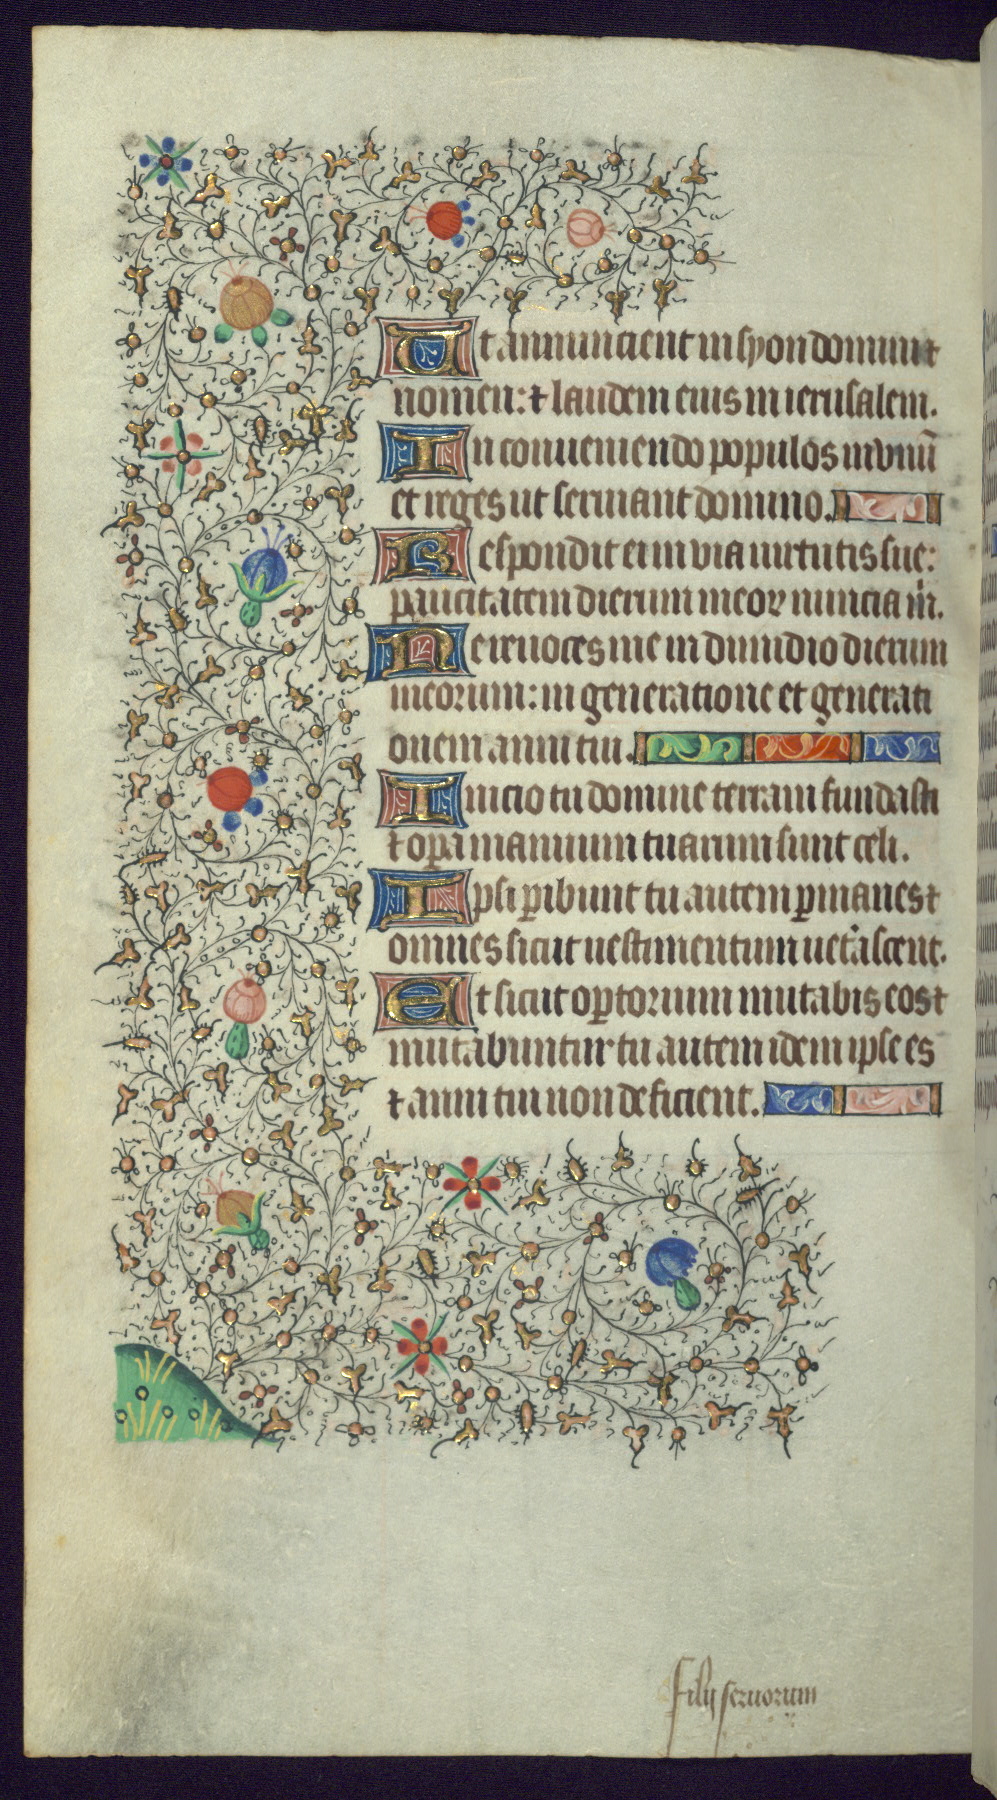 Ut annuncient in syon domini
nomen: ⁊ laudem eius in ierusalem.
In conueniendo populos in vnū
et reges ut seruiant domino.
Respondit ei in via uirtutis sue:
paucitatem dierum meoꝝ nuncia m̄.
Ne reuoces me in dimidio dierum
meorum: in generatione et generati
onem anni tui.
Inicio tu domine terram fundasti
⁊ opa manuum tuarum sunt celi.
Ipsi ꝑibunt tu autem ꝑmanes ⁊
omnes sicut uestimentum uet'ascent.
Et sicut oꝑtorium mutabis eos ⁊
mutabuntur tu autem idem ipse es
⁊ anni tui non deficient.
filij seruorum